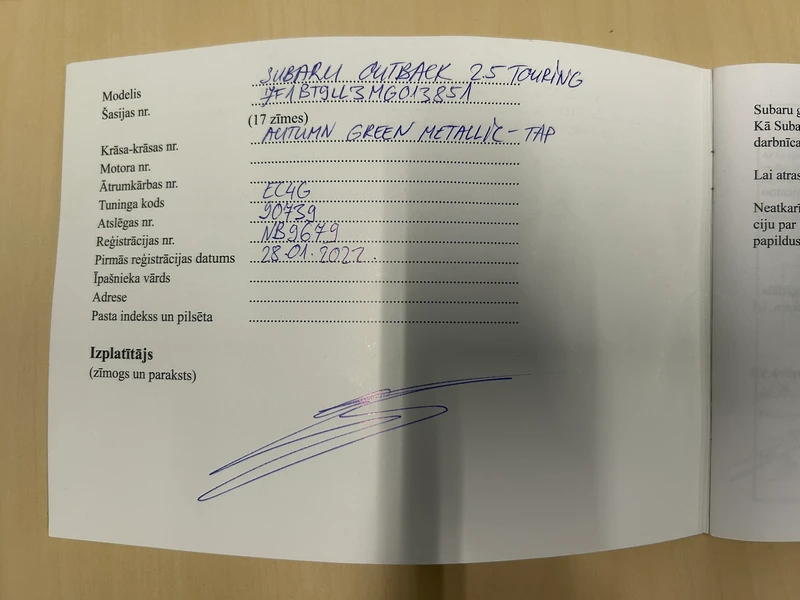 Modelis SUBARU OUTBACK 2.5 TOURING
Šasijas nr. JF1BT9LL3MG013851
(17 zīmes)
Krāsa-krāsas nr. AUTUMN GREEN METALLIC - TAP
Motora nr.
Ātrumkārbas nr.
Tuninga kods EC4G
Atslēgas nr. 90739
Reģistrācijas nr. NB9679
Pirmās reģistrācijas datums 28.01.2022.
Īpašnieka vārds
Adrese
Pasta indekss un pilsēta
Izplatītājs
(zīmogs un paraksts)
Subaru
Kā Suba
darbnīca
Lai atras
Neatkarī
ciju par
papildus